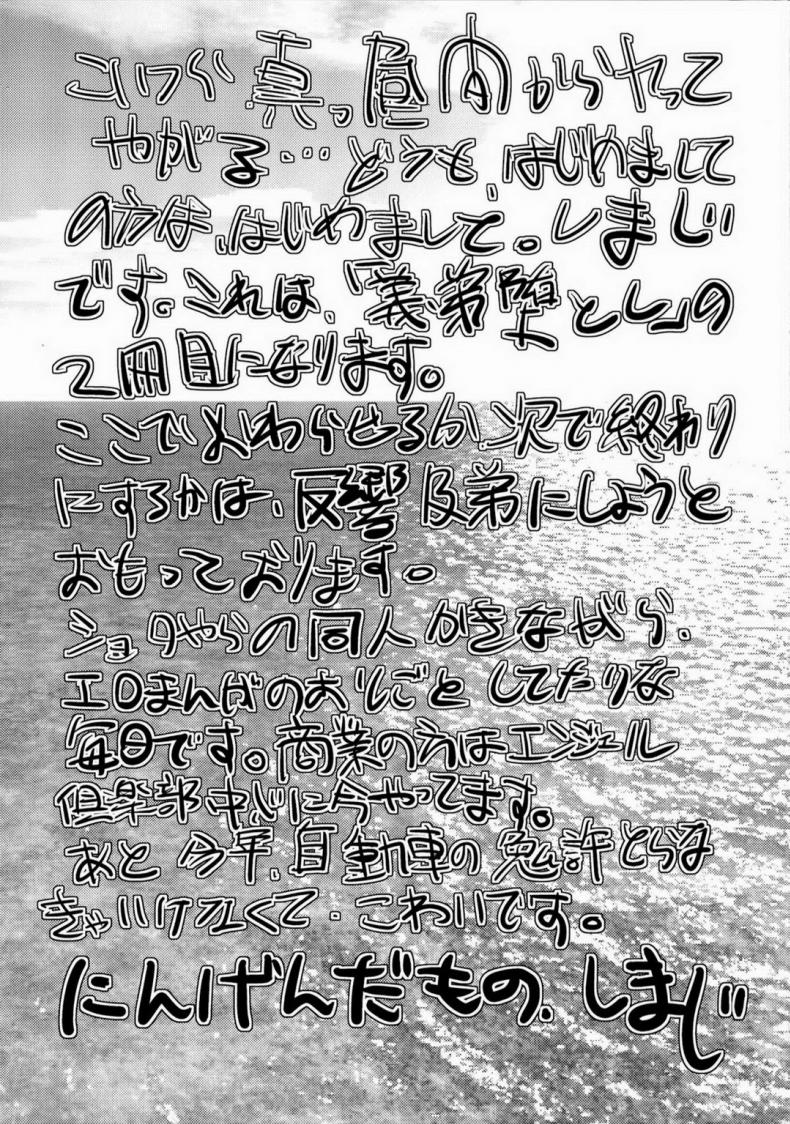 こいつら真っ昼間からヤって
やがる…どうも、はじめまして
の方は、はじめまして。しまじ
です。これは、「義弟堕とし」の
2冊目になります。
ここでおわらせるか、次で終わり
にするかは、反響及第にしようと
おもっております。
ショタやらの同人かきながら、
エロまんがのおしごとしてたりな
毎日です。商業の方はエンジェル
倶楽部中心に今やってます。
あと今年、自動車の免許とらな
きゃいけなくて、こわいです。
にんげんだもの、しまじ